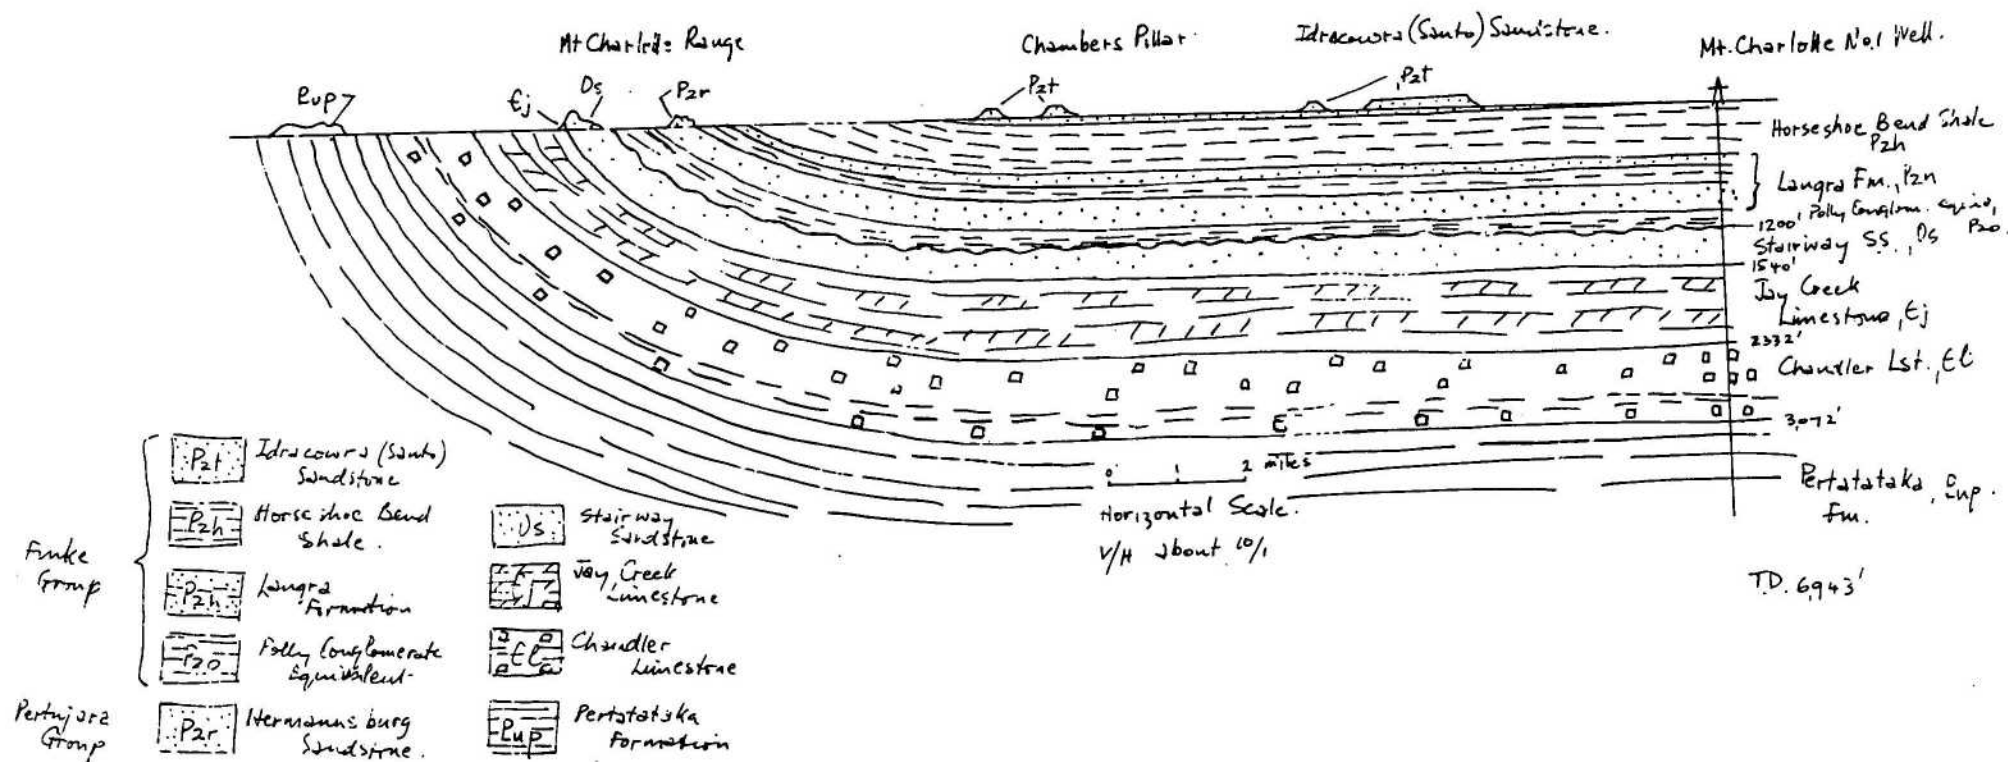 Mt Charlotte Range
Chambers Pillar
Idracowra (Santo) Sandstone.
Mt. Charlotte No.1 Well.
Pup
Ɛj
Os
P2r
P2t
P2t
Horseshoe Bend Shale
P2h
Langra Fm., P2n
Polly Conglom. equiv,
P2o.
1200'
Stairway SS., Os
1540'
Jay Creek
Limestone, Ɛj
2332'
Chandler Lst., Ɛl
3,072'
Pertatataka, Pup.
Fm.
T.D. 6,943'
0 1 2 miles
Horizontal Scale.
V/H about 10/1
Finke
Group
P2t Idracowra (Santo)
Sandstone
P2h Horseshoe Bend
Shale.
P2n Langra
Formation
P2o Polly Conglomerate
Equivalent
Pertnjara
Group
P2r Hermannsburg
Sandstone.
Os Stairway
Sandstone
Ɛj Jay Creek
Limestone
Ɛl Chandler
Limestone
Pup Pertatataka
Formation